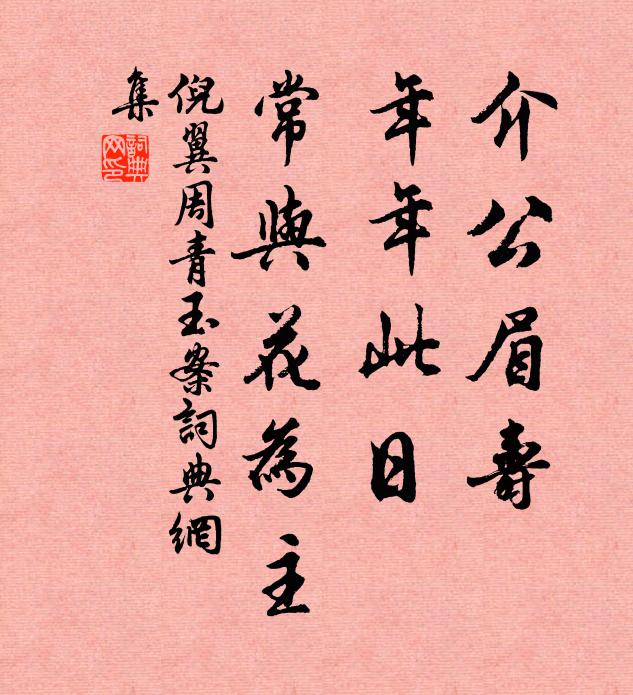 介公眉壽
年年此日
常與花為主
倪翼周青玉案詞典網
集
詞典
网印